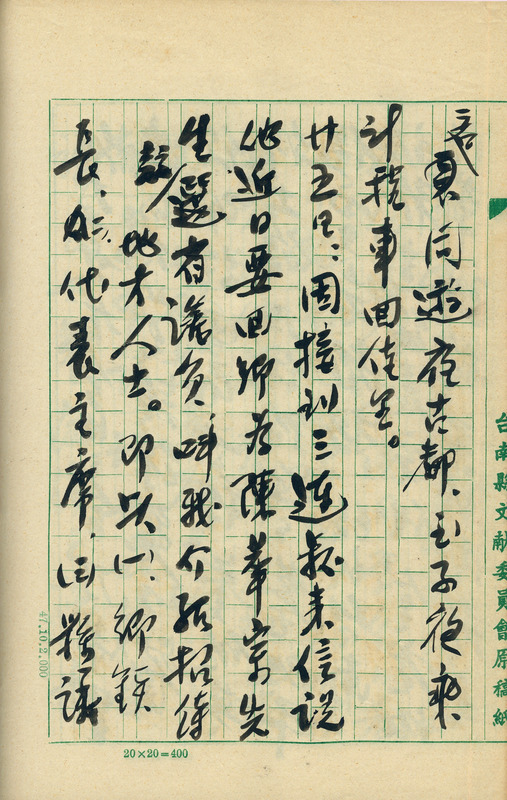 台南縣文献委員會原稿紙
裏同遊夜古都、至子夜乘
計程車回佳里。
廿五日：因接到三連叔來信説
他近日要回鄉為陳華宗先
生選省議員、叫我介紹招待
地方人士。即以鄉鎮
長、代表主席、縣議
47.10.2,000
20×20=400